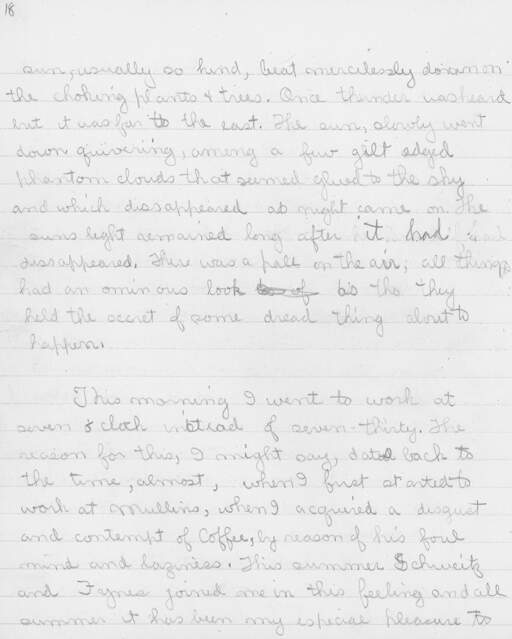 18
sun, usually so kind, beat mercilessly down on
the choking plants & trees. Once thunder was heard
but it was far to the east. The sun, slowly went
down quivering, among a few gilt edged
phantom clouds that seemed glued to the sky
and which dissappeared as night came on. The
suns light remained long after it had
dissappeared. There was a pale on the air; all things
had an ominous look as tho they
held the secret of some dread thing about to
happen.
This morning I went to work at
seven o clock instead of seven-thirty. The
reason for this, I might say, dated back to
the time, almost, when I first started to
work at Mullins, when I acquired a disgust
and contempt of Coffee, by reason of his foul
mind and laziness. This summer Schweitz
and joined me in this feeling and all
summer it has been my especial pleasure to